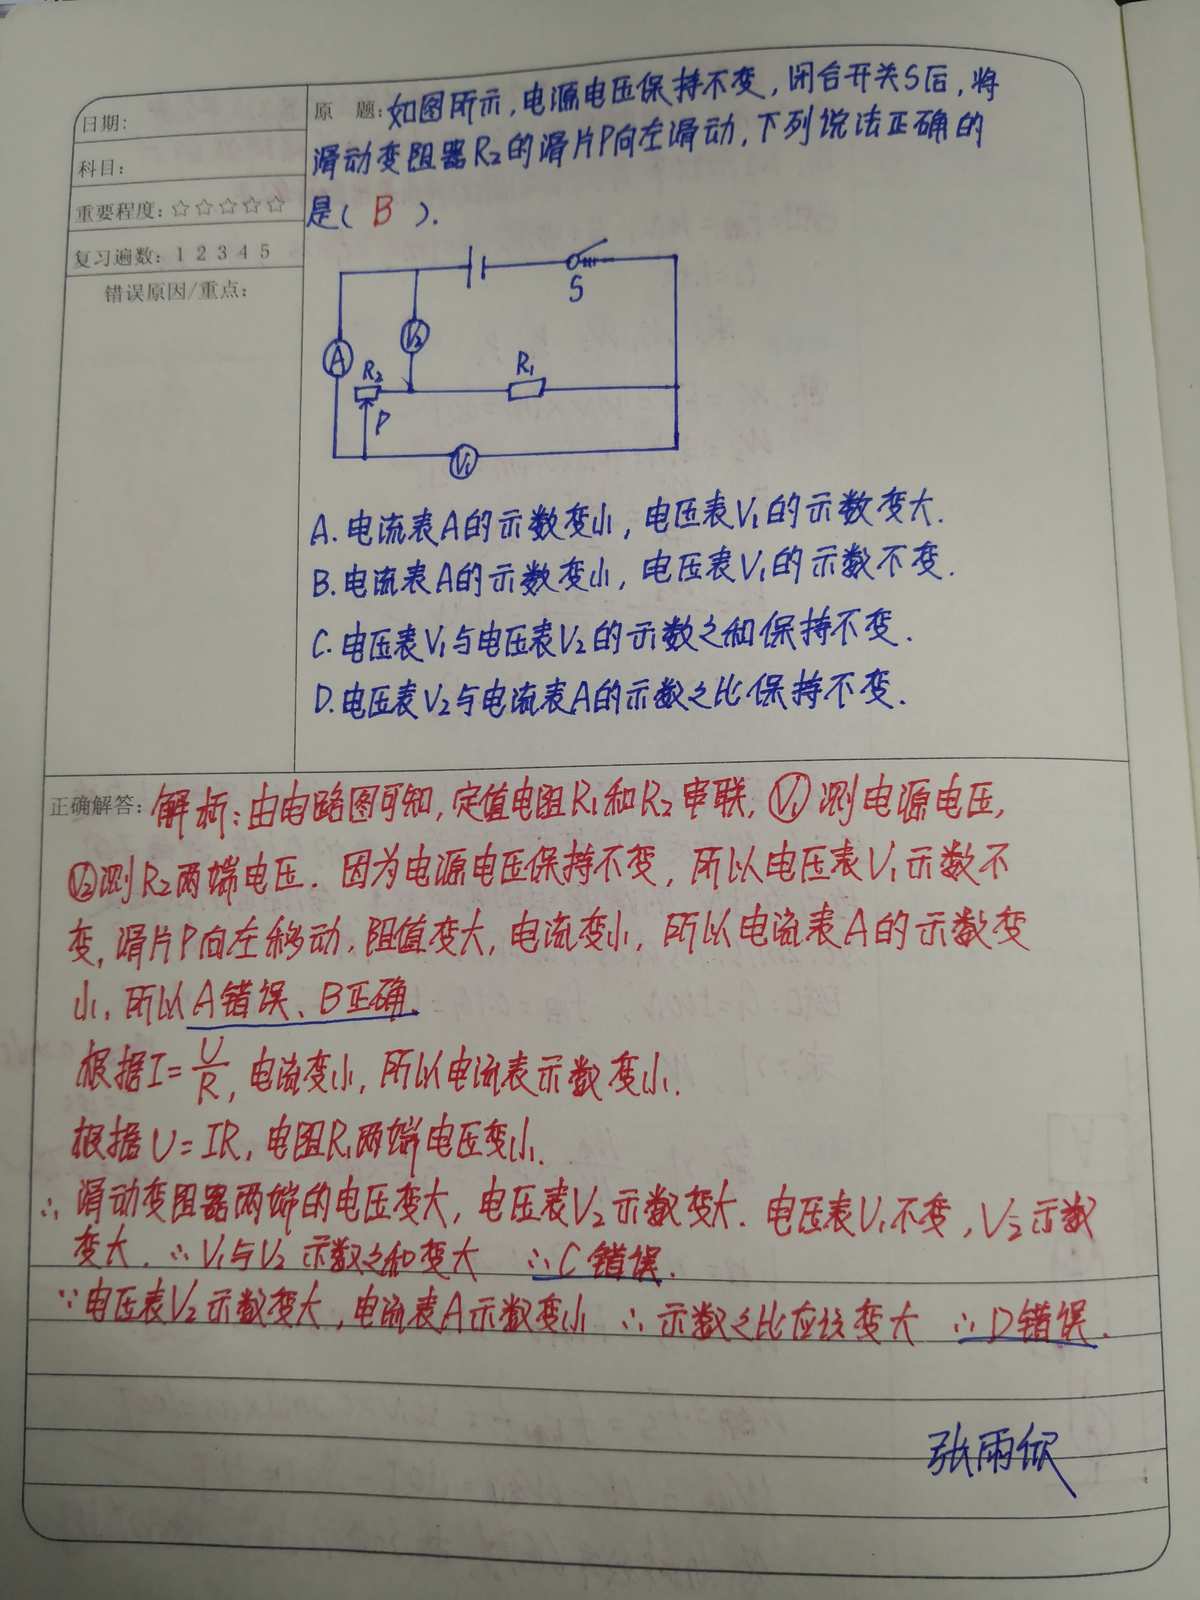 日期：
科目：
重要程度：☆☆☆☆☆
复习遍数：1 2 3 4 5
错误原因/重点：
原 题：如图所示，电源电压保持不变，闭合开关S后，将
滑动变阻器R₂的滑片P向左滑动，下列说法正确的
是（ B ）.
S
A
V₂
R₂
R₁
P
V₁
A.电流表A的示数变小，电压表V₁的示数变大.
B.电流表A的示数变小，电压表V₁的示数不变.
C.电压表V₁与电压表V₂的示数之和保持不变.
D.电压表V₂与电流表A的示数之比保持不变.
正确解答：解析：由电路图可知，定值电阻R₁和R₂串联，V₁测电源电压，
V₂测R₂两端电压. 因为电源电压保持不变，所以电压表V₁示数不
变，滑片P向左移动，阻值变大，电流变小，所以电流表A的示数变
小，所以A错误、B正确.
根据I=U/R，电流变小，所以电流表示数变小.
根据U=IR，电阻R₁两端电压变小.
∴滑动变阻器两端的电压变大，电压表V₂示数变大. 电压表V₁不变，V₂示数
变大. ∴V₁与V₂示数之和变大 ∴C错误.
∵电压表V₂示数变大，电流表A示数变小 ∴示数之比应该变大 ∴D错误.
张雨欣